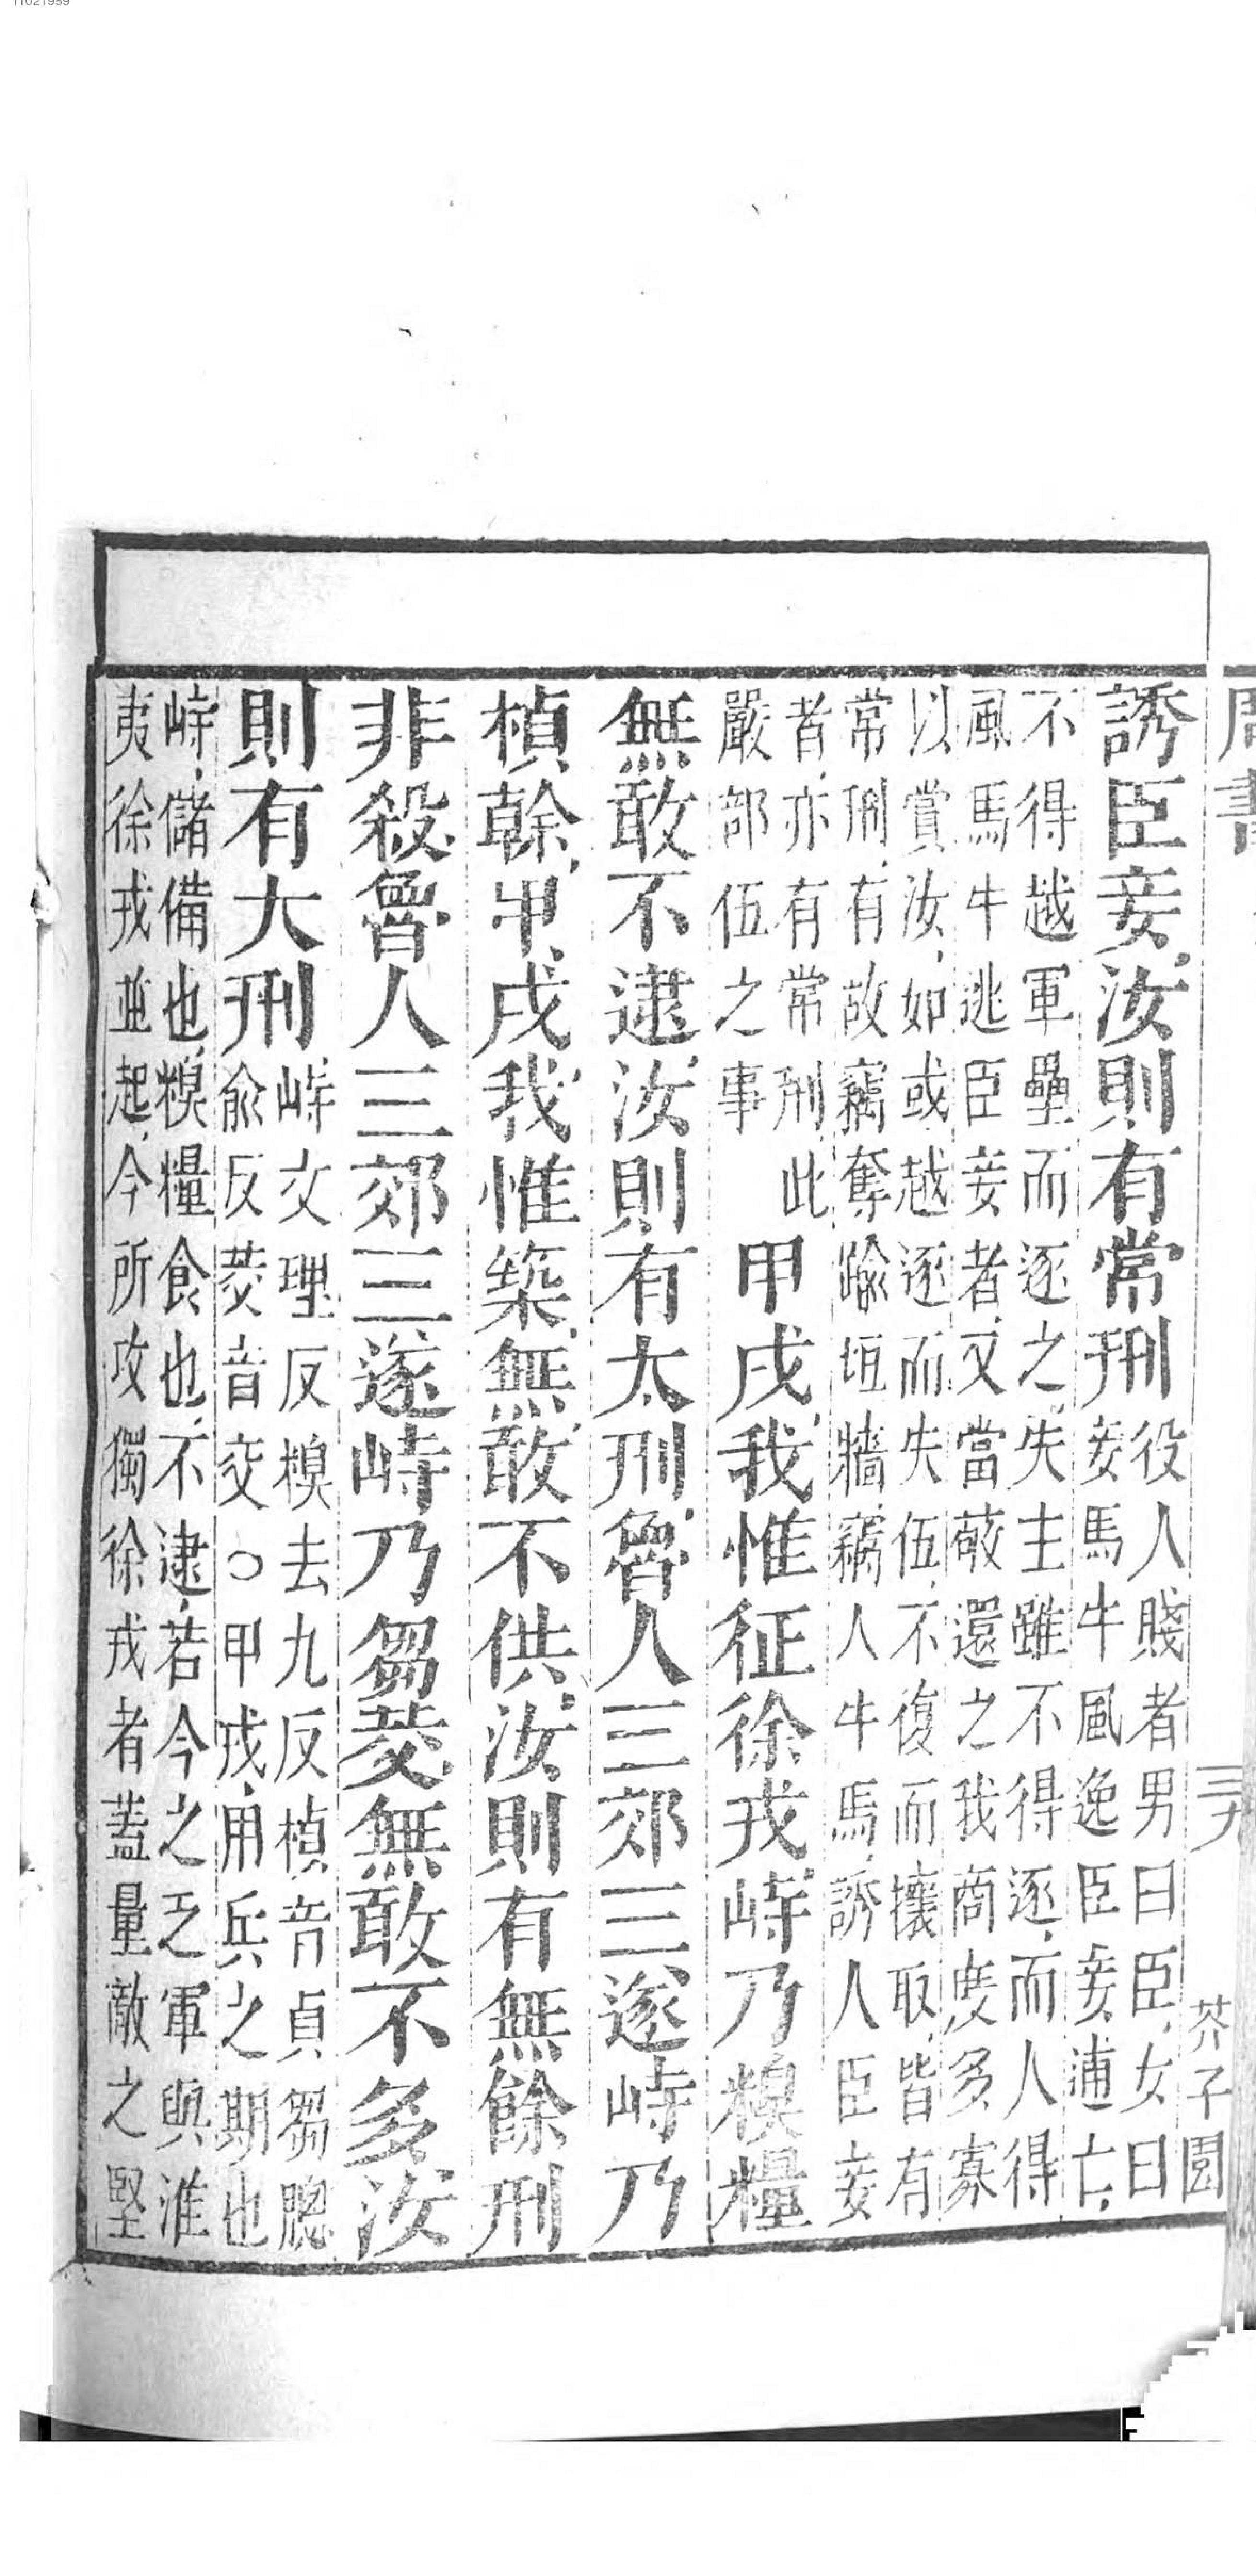 11021959
周書
三十九
芥子園
誘臣妾、汝則有常刑
役人賤者男曰臣、女曰
妾馬牛風逸臣妾逋亡、
不得越軍壘而逐之、失主雖不得逐、而人得
風馬牛逃臣妾者、又當敬還之我商度多寡
以賞汝、如或越逐而失伍、不復而攘取、皆有
常刑、有故竊奪踰垣墻竊人牛馬、誘人臣妾
者、亦有常刑、此
嚴部伍之事
甲戌、我惟征徐戎、峙乃糗糧
無敢不逮、汝則有大刑、魯人三郊三遂、峙乃
楨榦、甲戌、我惟築、無敢不供、汝則有無餘刑
非殺、魯人三郊三遂峙乃芻茭、無敢不多、汝
則有大刑
峙丈理反糗去九反楨音貞芻聰
兪反茭音交○甲戌、用兵之期也
峙、儲備也、糗糧食也、不逮、若今之乏軍興淮
夷徐戎並起、今所攻獨徐戎者蓋量敵之堅